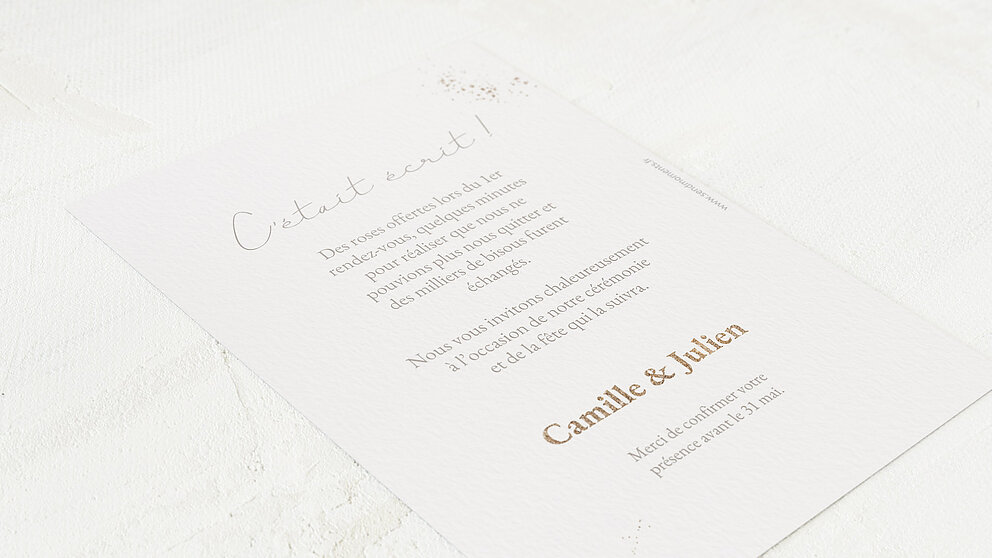 C'était écrit !
Des roses offertes lors du 1er
rendez-vous, quelques minutes
pour réaliser que nous ne
pouvions plus nous quitter et
des milliers de bisous furent
échangés.
Nous vous invitons chaleureusement
à l'occasion de notre cérémonie
et de la fête qui la suivra.
Camille & Julien
Merci de confirmer votre
présence avant le 31 mai.
www.sendmoments.fr